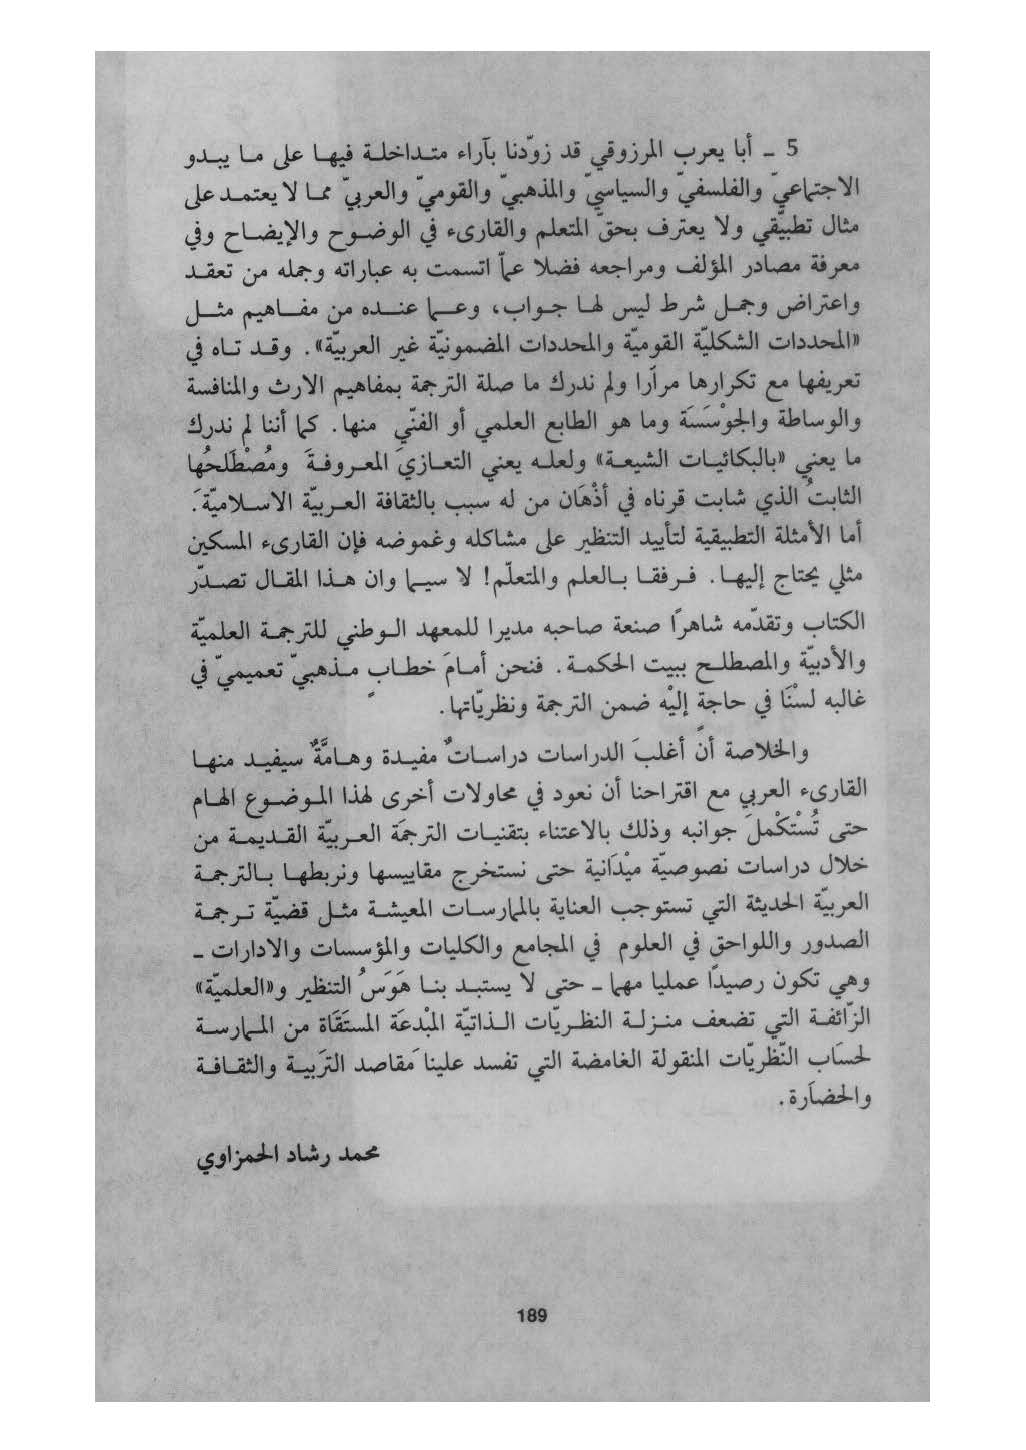 5 ـ أبا يعرب المرزوقي قد زوّدنا بآراء متداخلة فيها على ما يبدو
الاجتماعيّ والفلسفيّ والسياسيّ والمذهبيّ والقوميّ والعربيّ مما لا يعتمد على
مثال تطبيّقي ولا يعترف بحقّ المتعلم والقارىء في الوضوح والإيضاح وفي
معرفة مصادر المؤلف ومراجعه فضلا عمّا اتسمت به عباراته وجمله من تعقد
واعتراض وجمل شرط ليس لها جواب، وعما عنده من مفاهيم مثل
«المحددات الشكليّة القوميّة والمحددات المضمونيّة غير العربيّة». وقد تاه في
تعريفها مع تكرارها مرارا ولم ندرك ما صلة الترجمة بمفاهيم الارث والمنافسة
والوساطة والجوْسَسَة وما هو الطابع العلمي أو الفنّي منها. كما أننا لم ندرك
ما يعني «بالبكائيات الشيعة» ولعله يعني التعازيَ المعروفةَ ومُصْطَلحُها
الثابتُ الذي شابت قرناه في أذْهَان من له سبب بالثقافة العربيّة الاسلاميّة.
أما الأمثلة التطبيقية لتأييد التنظير على مشاكله وغموضه فإن القارىء المسكين
مثلي يحتاج إليها. فرفقا بالعلم والمتعلّم! لا سيما وان هذا المقال تصدّر
الكتاب وتقدّمه شاهرًا صنعة صاحبه مديرا للمعهد الوطني للترجمة العلميّة
والأدبيّة والمصطلح ببيت الحكمة. فنحن أمامَ خطابٍ مذهبيّ تعميميّ في
غالبه لسْنَا في حاجةٍ إليْه ضمن الترجمة ونظريّاتها.
والخلاصة أن أغلبَ الدراسات دراساتٌ مفيدة وهامَّةٌ سيفيد منها
القارىء العربي مع اقتراحنا أن نعود في محاولات أخرى لهذا الموضوع الهام
حتى تُسْتكْملَ جوانبه وذلك بالاعتناء بتقنيات الترجمَة العربيّة القديمة من
خلال دراسات نصوصيّة ميْدَانية حتى نستخرج مقاييسها ونربطها بالترجمة
العربيّة الحديثة التي تستوجب العناية بالممارسات المعيشة مثل قضيّة ترجمة
الصدور واللواحق في العلوم في المجامع والكليات والمؤسسات والادارات ـ
وهي تكون رصيدًا عمليا مهما ـ حتى لا يستبد بنا هَوَسُ التنظير و«العلميّة»
الزّائفة التي تضعف منزلة النظريّات الذاتيّة المبْدعَة المستَقَاة من الممارسة
لحسَاب النّظريّات المنقولة الغامضة التي تفسد علينا مَقاصد التَربية والثقافة
والحضاَرة.
محمد رشاد الحمزاوي
189